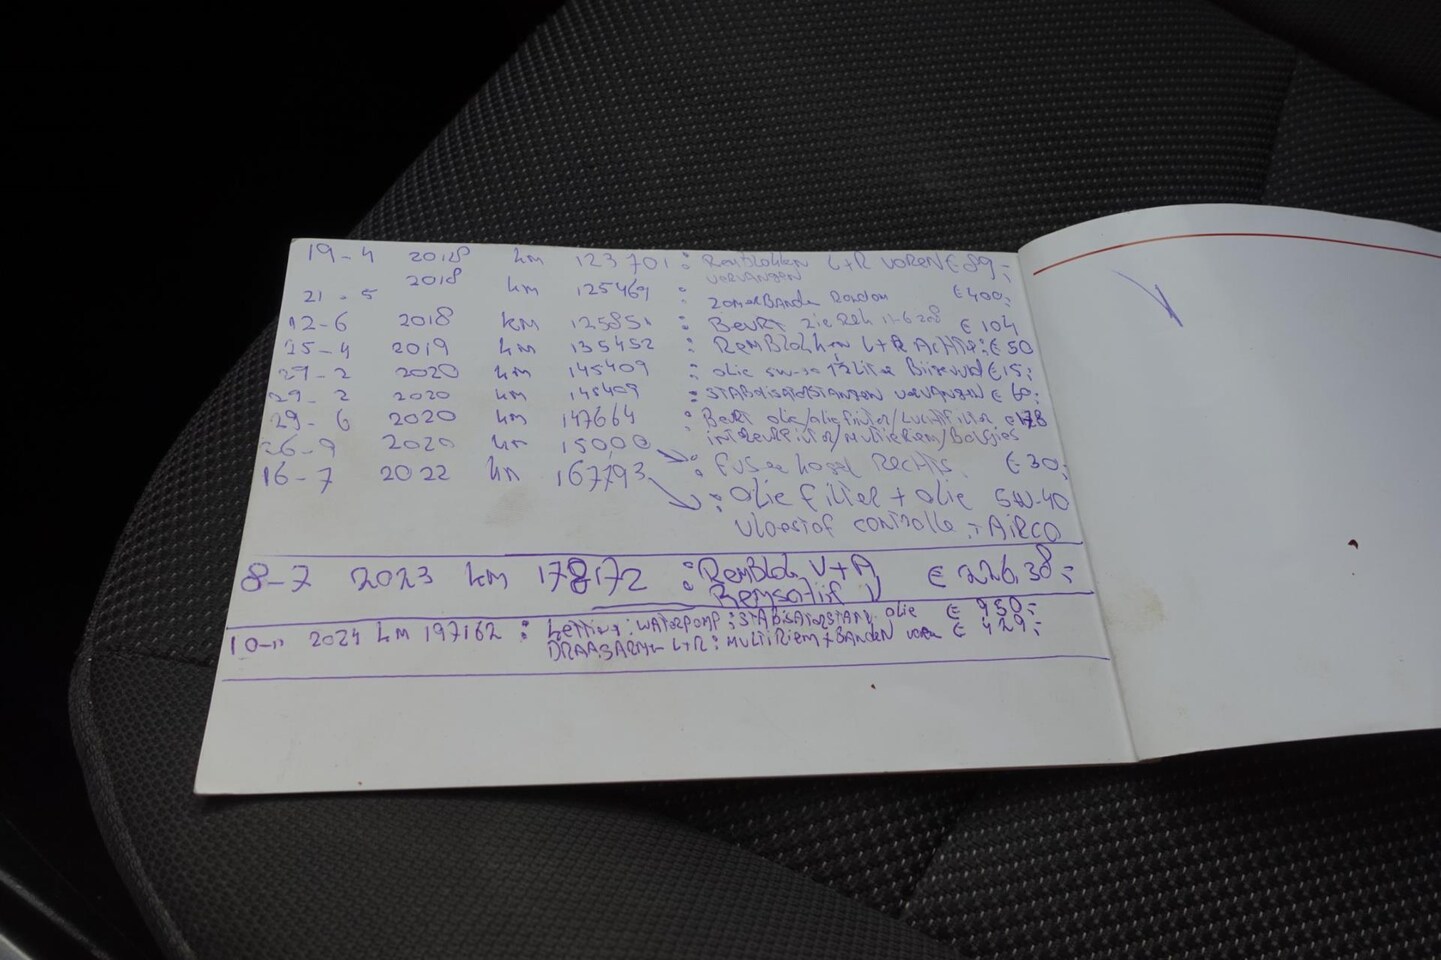 19-4 2018 km 123701: Remblokken L+R voren € 89,-
vervangen
21-5 2018 km 125469 : zomerBanden Rondom € 400,-
12-6 2018 km 125851 : Beurt zie Rek 2018 € 104
25-4 2019 km 135452 : RemBlokken L+R Achter: € 50
29-2 2020 km 145409 : olie 5w-30 Liter € 15,-
29-2 2020 km 145409 : STABilisatorSTANgen vervangen € 60,-
29-6 2020 km 147664 : Beurt olie/oliefilter/Luchtfilter € 178
interieurfilter/Multiriem/Bougies
26-9 2020 km 15000 : fusee kogel Rechts € 30,-
16-7 2022 km 167793 : olie filter + olie 5W-40
vloeistof controlle + AiRCO
8-7 2023 km 178172 : Remblok V+A € 226,38,-
10-11 2024 km 197162 : ketting: WATERpomp: STABisAtorSTANg olie € 950,-
DRAAGARM L+R: MultiRiem + BANDEN voren € 429,-